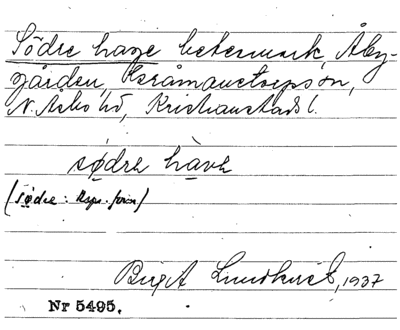 Södre hage betesmark, Åby-
gården, Hermanstorps sn,
N. Åsbo hd, Kristianstads l.
södre hàva
(södre: Rspr. form)
Birgit Lundkvist, 1937
Nr 5495.